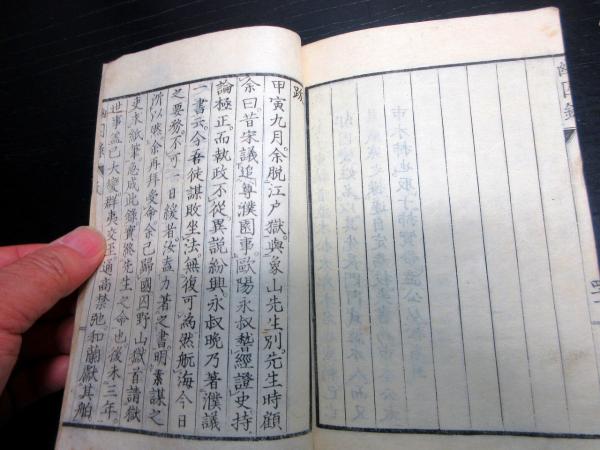 跋
甲寅九月。余脱江戸獄。與象山先生別。先生時顧
余曰。昔宋議追尊濮園事。歐陽永叔經證史。持
論極正。而執政不從。異說紛興。永叔晩乃著濮議
一書云。今吾徒謀敗坐法。無復可為。然航海今日
之要務。不可一日緩者。汝盍力著之書。明素謀之
所以然。余再拜受命。余已歸國囚野山獄。首請獄
吏求紙筆。急成此錄。實先生之命也。後未三年。
世事蓋已大變。群夷交至。通商禁弛。和蘭獻其舶
幽囚錄
幽囚錄